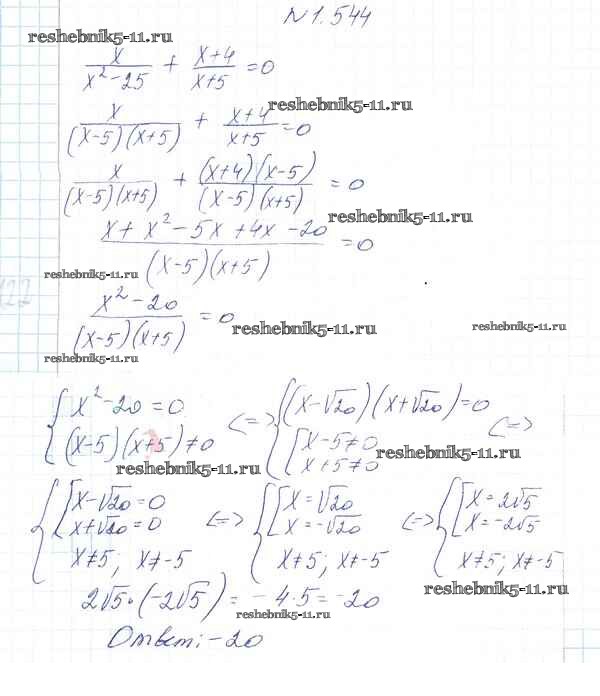 N 1.544
reshebnik5-11.ru
x/(x²-25) + (x+4)/(x+5) = 0
reshebnik5-11.ru
x/((x-5)(x+5)) + (x+4)/(x+5) = 0
x/((x-5)(x+5)) + ((x+4)(x-5))/((x-5)(x+5)) = 0
reshebnik5-11.ru
(x + x² - 5x + 4x - 20)/((x-5)(x+5)) = 0
reshebnik5-11.ru
(x² - 20)/((x-5)(x+5)) = 0
reshebnik5-11.ru
reshebnik5-11.ru
reshebnik5-11.ru
{ x² - 20 = 0 <=> { (x-√20)(x+√20) = 0 <=>
(x-5)(x+5) ≠ 0 [ x-5≠0
x+5≠0
reshebnik5-11.ru
reshebnik5-11.ru
{ [ x-√20 = 0 <=> { [ x = √20 <=> { [ x = 2√5
x+√20 = 0 x = -√20 x = -2√5
x≠5; x≠-5 x≠5; x≠-5 x≠5; x≠-5
reshebnik5-11.ru
2√5 · (-2√5) = -4·5 = -20
reshebnik5-11.ru
Ответ: -20